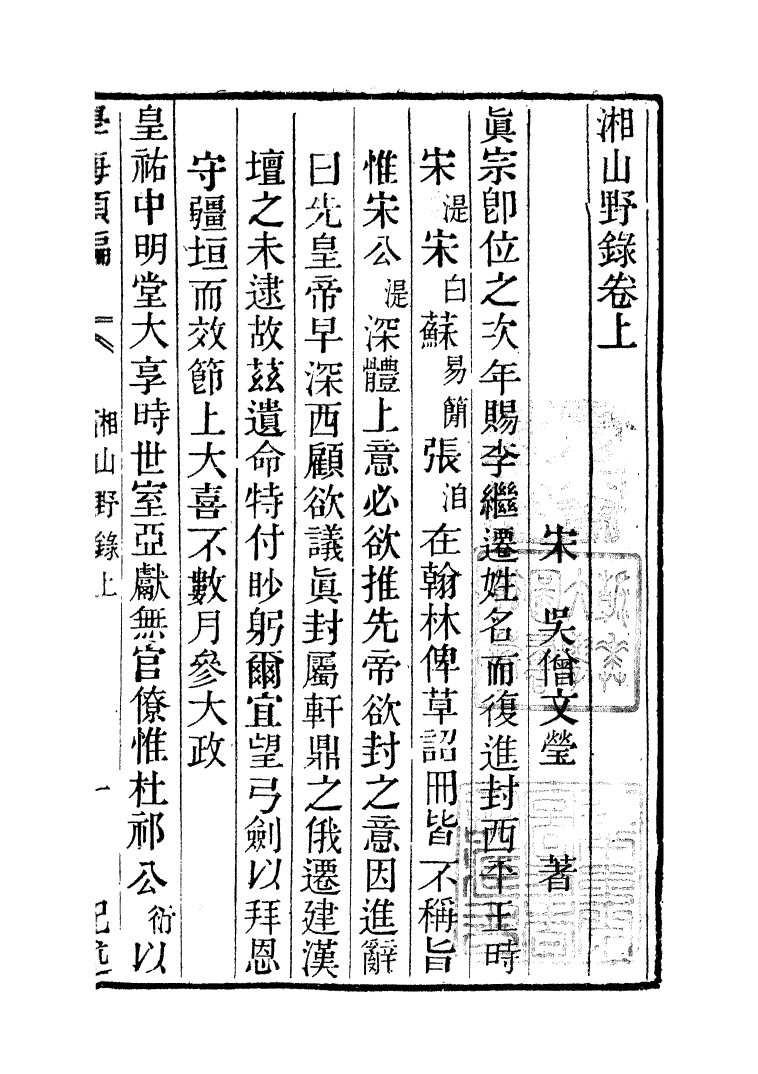 湘山野錄卷上
宋 吳僧文瑩 著
眞宗卽位之次年賜李繼遷姓名而復進封西平王時
宋湜宋白蘇易簡張洎在翰林俾草詔冊皆不稱旨
惟宋公湜深體上意必欲推先帝欲封之意因進辭
曰先皇帝早深西顧欲議眞封屬軒鼎之俄遷建漢
壇之未逮故茲遺命特付眇躬爾宜望弓劍以拜恩
守疆垣而效節上大喜不數月參大政
皇祐中明堂大享時世室亞獻無官僚惟杜祁公衍以
湘山野錄上 一